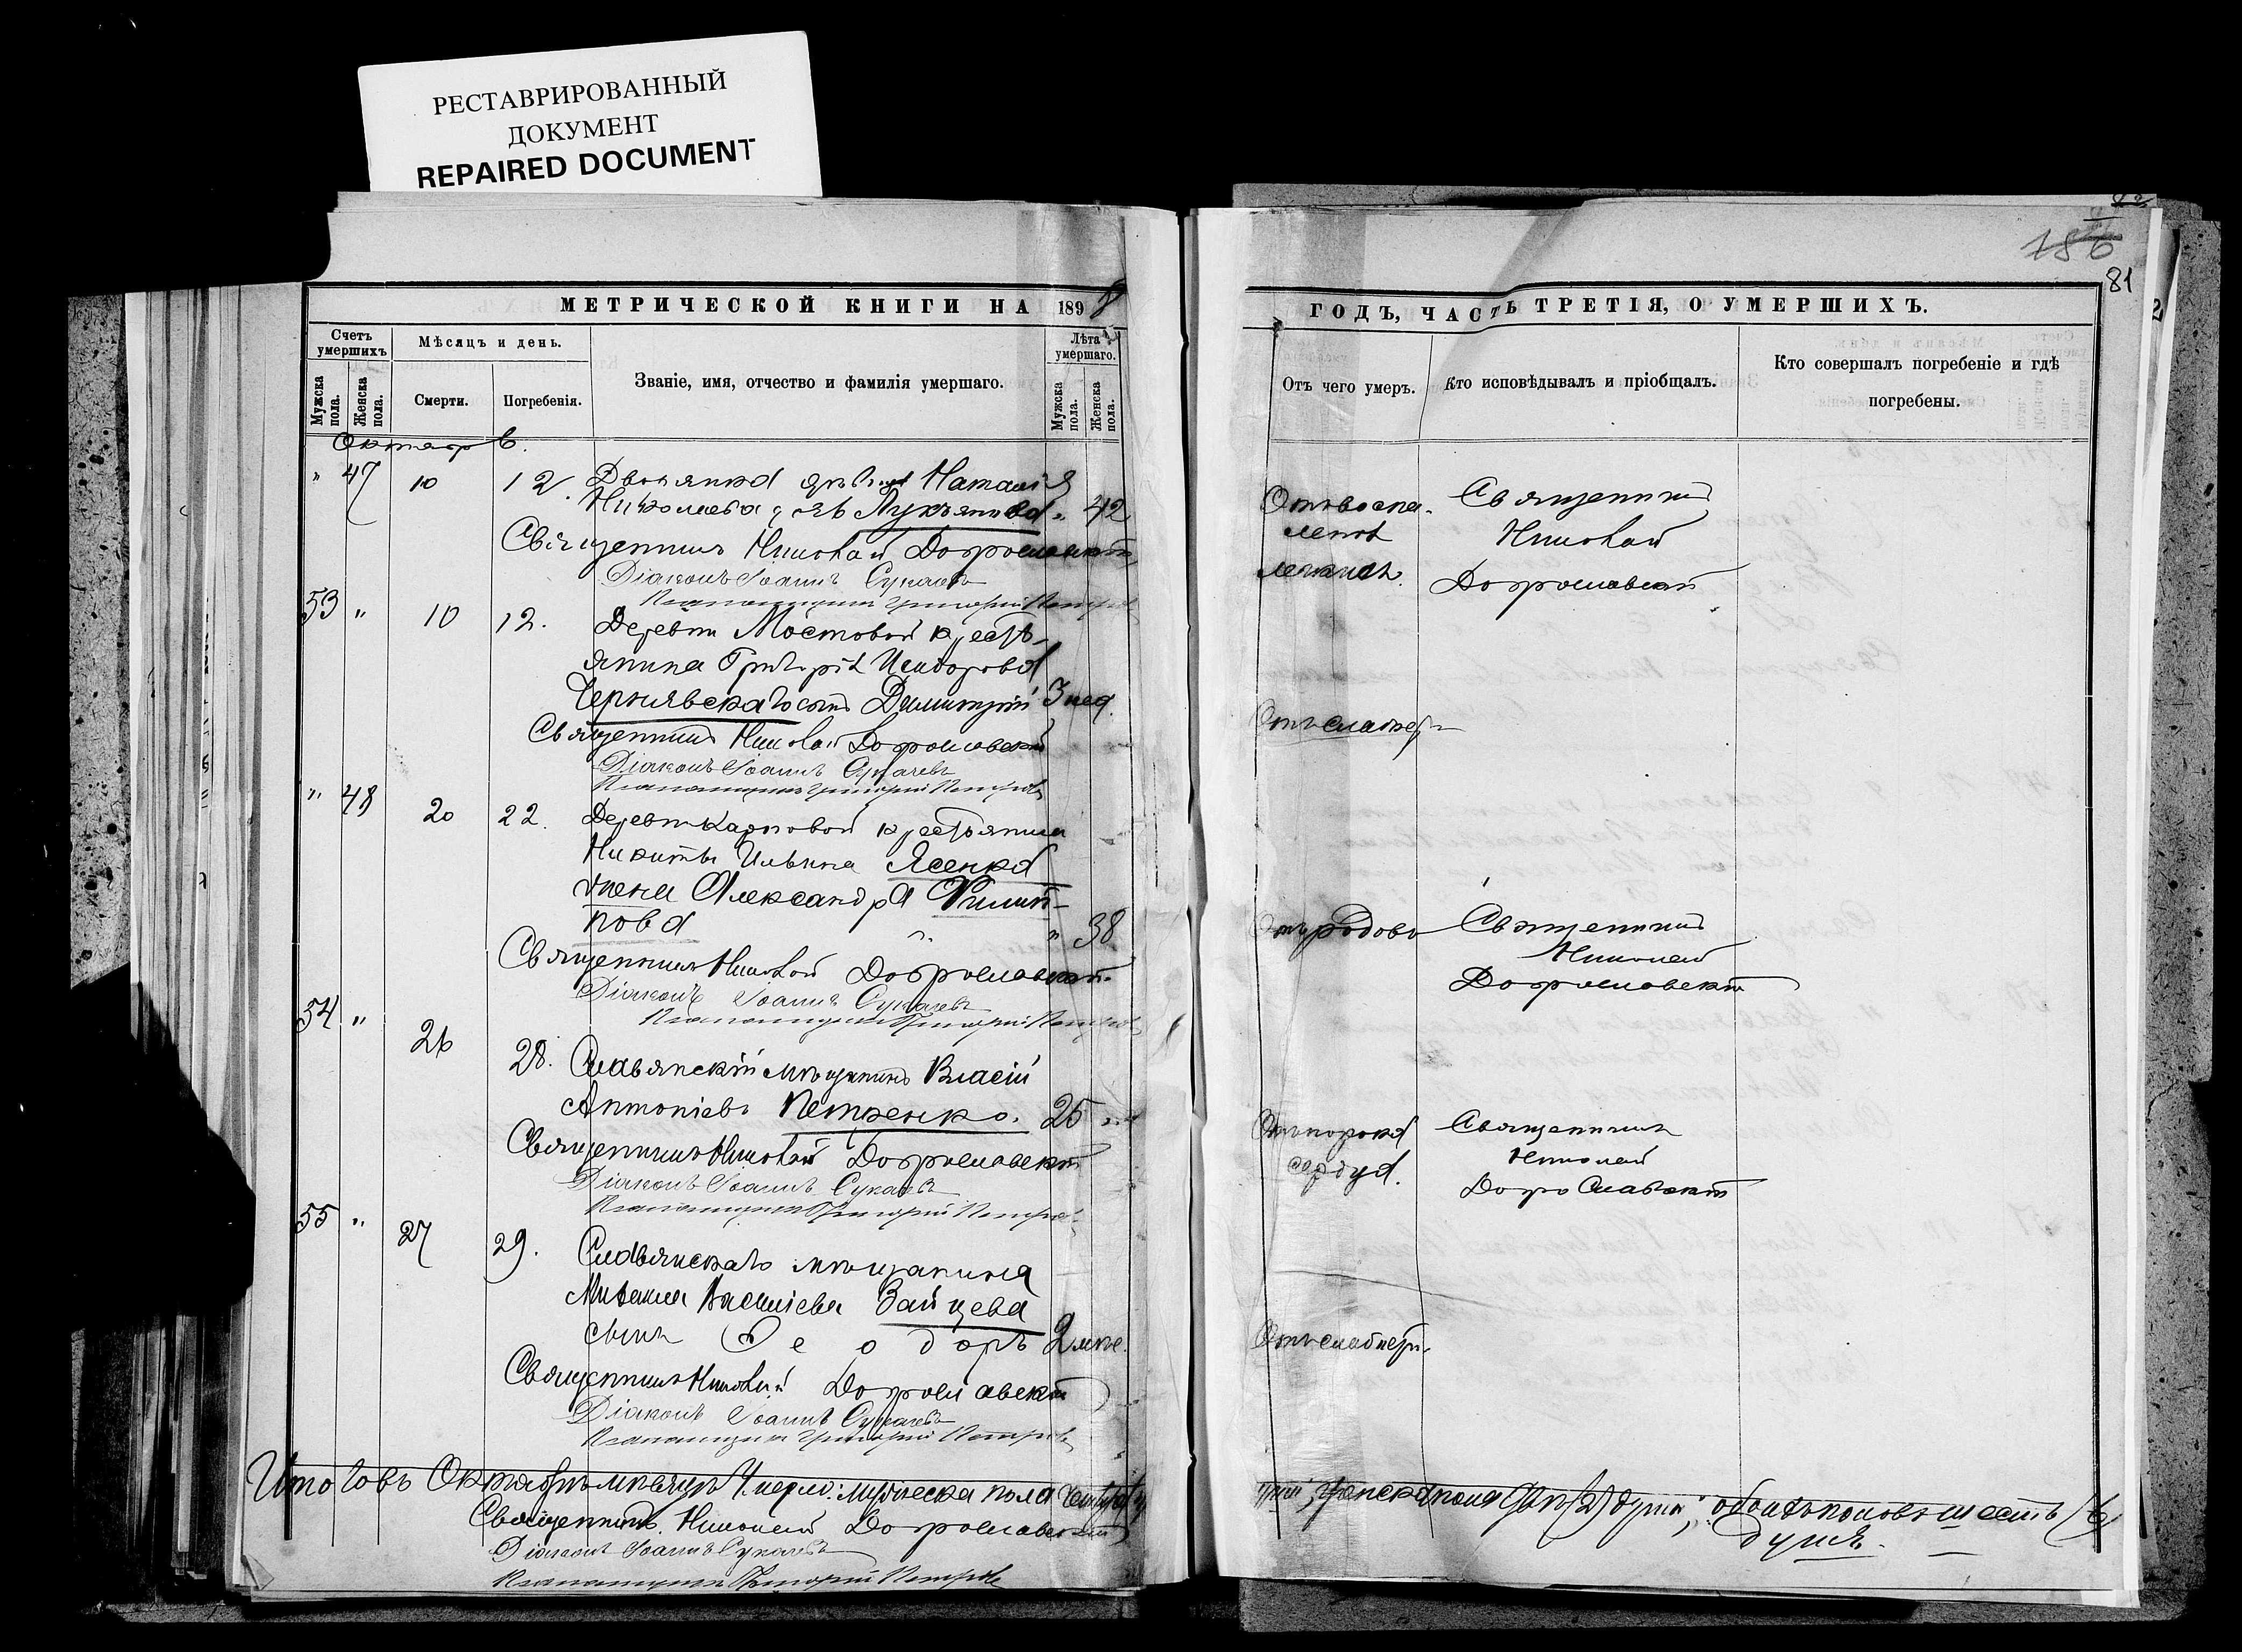 РЕСТАВРИРОВАННЫЙ
ДОКУМЕНТ
REPAIRED DOCUMENT
МЕТРИЧЕСКОЙ КНИГИ НА 1898
Счетъ умершихъ
Мѣсяцъ и день.
Званіе, имя, отчество и фамилія умершаго.
Лѣта умершаго.
Мужска пола.
Женска пола.
Смерти.
Погребенія.
Мужска пола.
Женска пола.
Октябрь.
" 47 10 12. Дворянка Наталія
Николаева Лукьянова " 42
Священникъ Николай Доброславскій
Діаконъ Іоаннъ Сукачевъ
Псаломщикъ Григорій Петровъ
53 " 10 12. Деревни Мостовой кресть-
янина Григорія Исидорова
Чернявскаго сынъ Димитрій 3 нед.
Священникъ Николай Доброславскій
Діаконъ Іоаннъ Сукачевъ
Псаломщикъ Григорій Петровъ
" 48 20 22. Деревни Карповой крестьянина
Никиты Ильина Ясенка
жена Александра Филип-
пова " 38
Священникъ Николай Доброславскій
Діаконъ Іоаннъ Сукачевъ
Псаломщикъ Григорій Петровъ
54 " 26 28. Славянскій мѣщанинъ Власій
Антоніевъ Петренко. 25
Священникъ Николай Доброславскій
Діаконъ Іоаннъ Сукачевъ
Псаломщикъ Григорій Петровъ
55 " 27 29. Славянскаго мѣщанина
Михаила Василіева Зайцева
сынъ Ѳеодоръ 2 мѣс.
Священникъ Николай Доброславскій
Діаконъ Іоаннъ Сукачевъ
Псаломщикъ Григорій Петровъ
Итого въ Октябрѣ мѣсяцѣ мужеска пола
Священникъ Николай Доброславскій
Діаконъ Іоаннъ Сукачевъ
Псаломщикъ Григорій Петровъ
156
81
ГОДЪ, ЧАСТЬ ТРЕТІЯ, О УМЕРШИХЪ.
Отъ чего умеръ.
Кто исповѣдывалъ и пріобщалъ.
Кто совершалъ погребеніе и гдѣ погребены.
Отъ воспа- Священникъ
ленія Николай
легкихъ. Доброславскій
Отъ слабости
Отъ родовъ Священникъ
Николай
Доброславскій
Отъ порока Священникъ
сердца. Николай
Доброславскій
Отъ слабости
женска пола двѣ (2) души; обоихъ половъ шесть (6)
душъ.